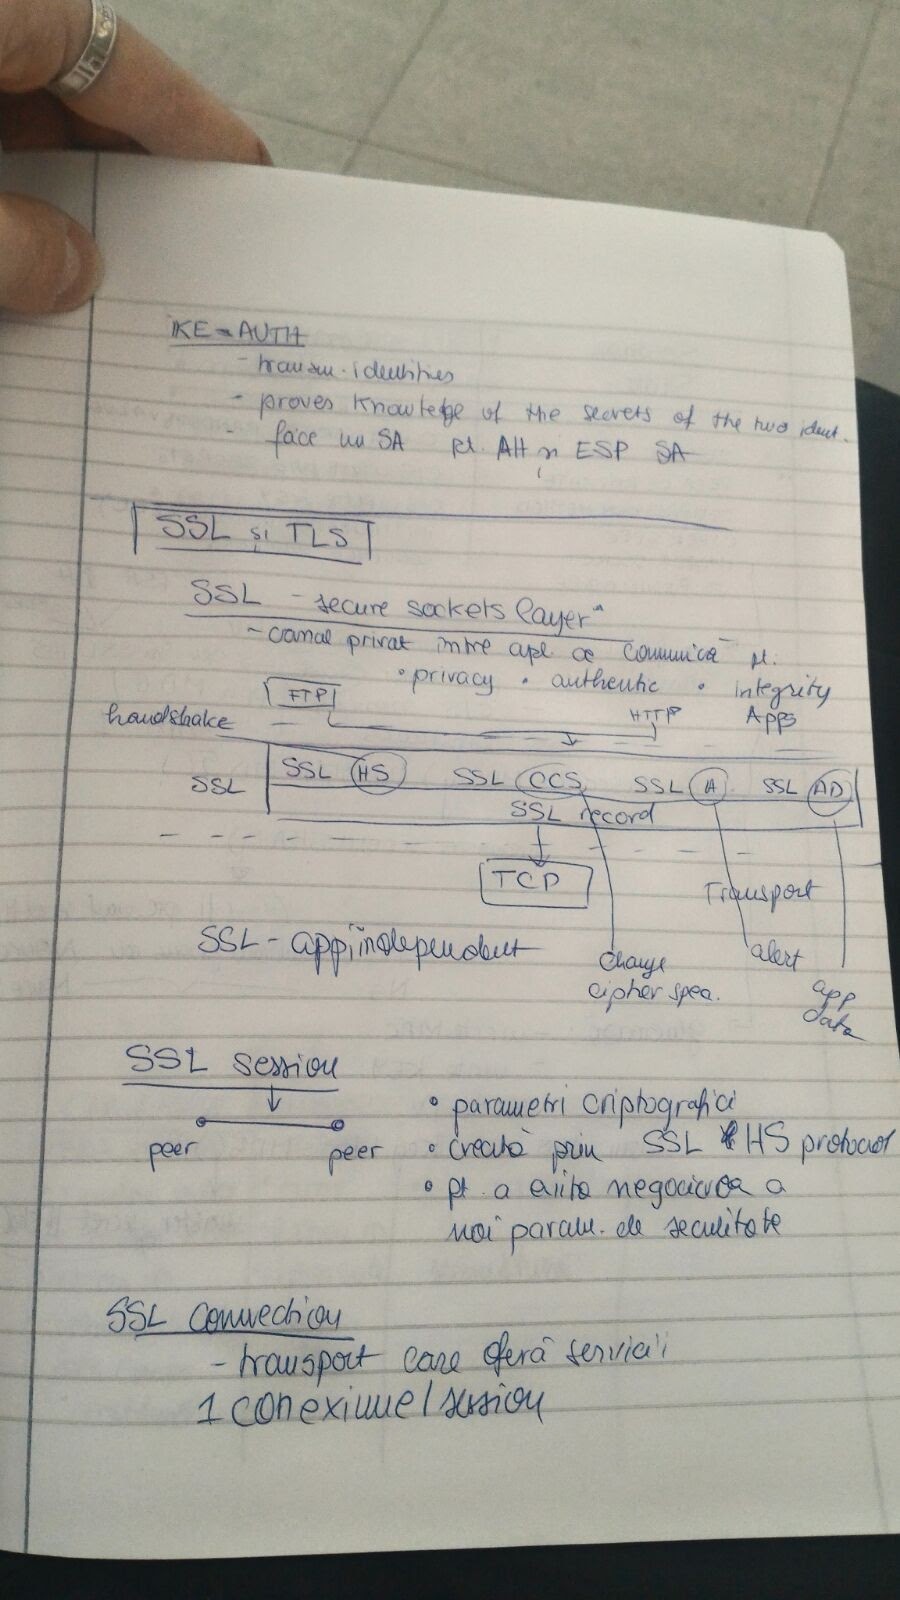 IKE-AUTH
- transm. identities
- proves knowledge of the secrets of the two ident.
- face un SA pt. AH și ESP SA
SSL și TLS
SSL - secure sockets layer"
- canal privat între apl ce comunică pt.
• privacy • authentic • integrity
FTP HTTP Apps
handshake
SSL SSL HS SSL CCS SSL A SSL AD
SSL record
TCP
Transport
SSL - app independent
change cipher spec.
alert
app data
SSL session
peer peer
• parametri criptografici
• creată prin SSL HS protocol
• pt. a evita negocierea a
noi param. de securitate
SSL connection
- transport care oferă servicii
1 conexiune/session